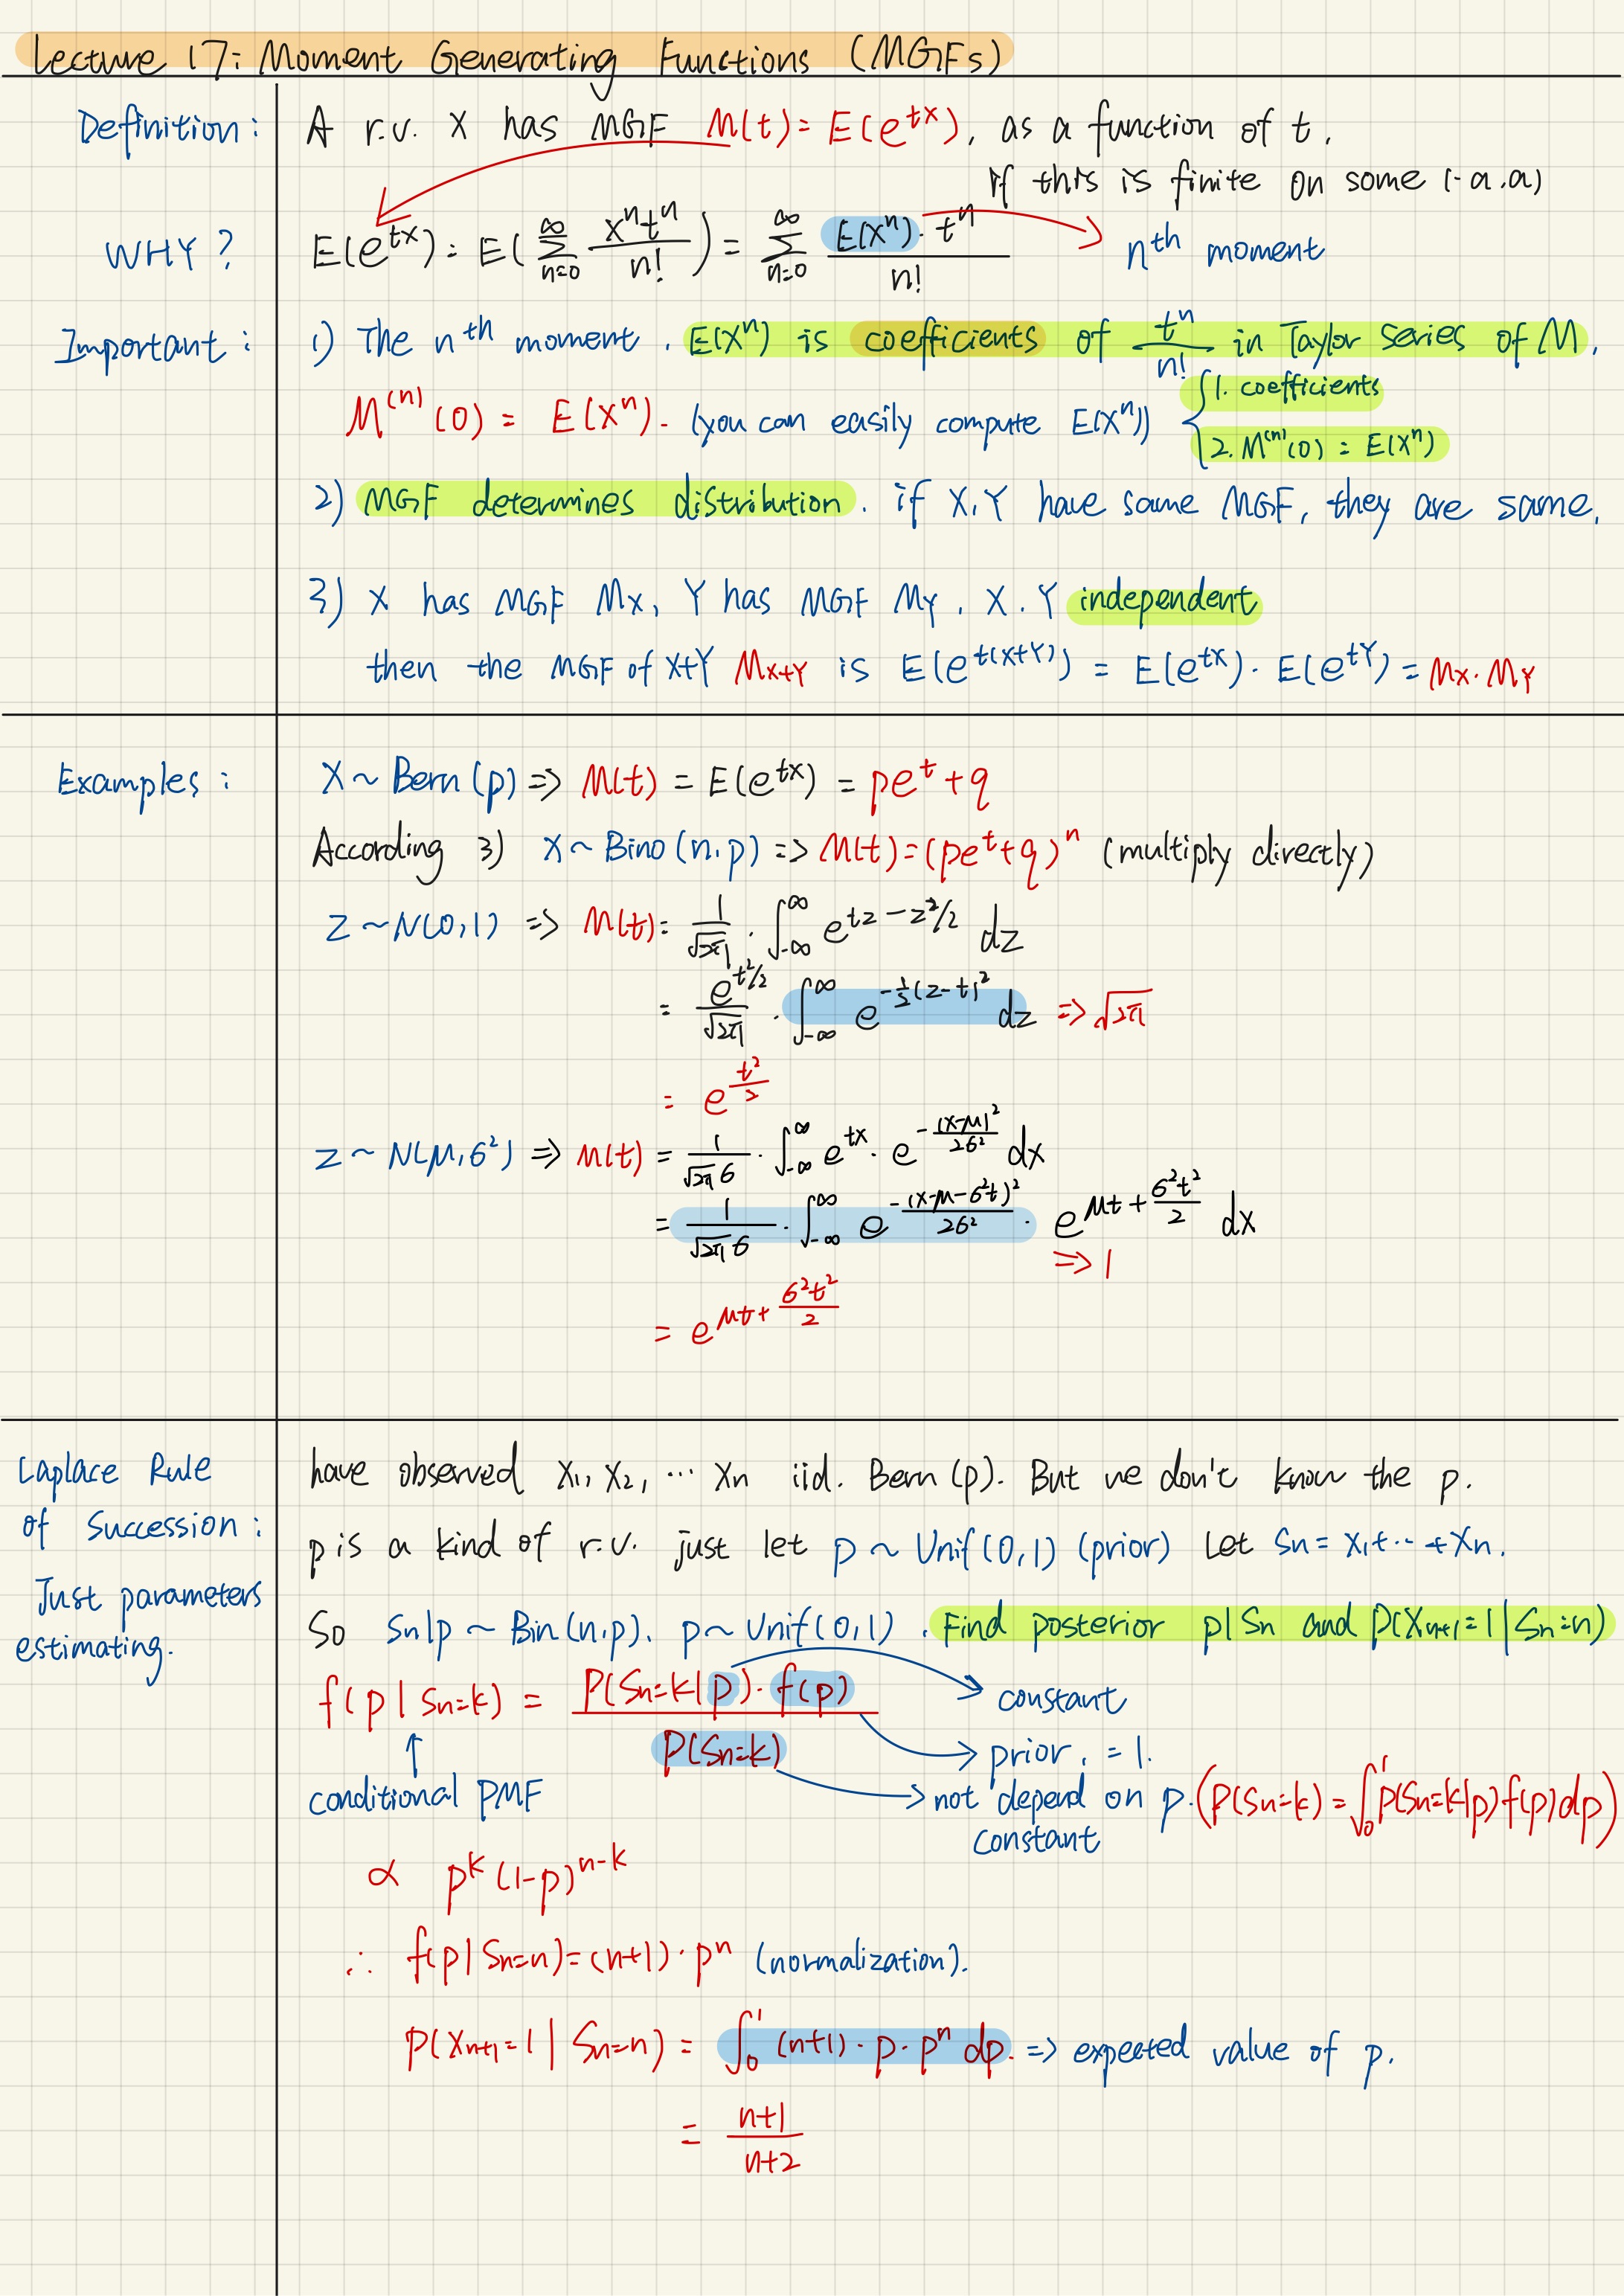 Lecture 17: Moment Generating Functions (MGFs)
Definition: A r.v. X has MGF M(t) = E(e^{tx}), as a function of t,
if this is finite on some (-a.a)
WHY? E(e^{tx}) = E(∑_{n=0}^{∞} x^n t^n / n!) = ∑_{n=0}^{∞} E(X^n)·t^n / n! → n^{th} moment
Important: 1) The n^{th} moment. E(X^n) is coefficients of t^n/n! in Taylor Series of M.
M^{(n)}(0) = E(X^n). (you can easily compute E(X^n)) { 1. coefficients
2. M^{(n)}(0) = E(X^n)
2) MGF determines distribution. if X,Y have same MGF, they are same.
3) X has MGF Mx, Y has MGF My. X.Y independent
then the MGF of X+Y M_{X+Y} is E(e^{t(X+Y)}) = E(e^{tx})·E(e^{tY}) = Mx·My
Examples: X ~ Bern(p) => M(t) = E(e^{tx}) = pe^t + q
According 3) X ~ Bino(n.p) => M(t) = (pe^t+q)^n (multiply directly)
Z ~ N(0,1) => M(t) = 1/√2π · ∫_{-∞}^{∞} e^{tz - z²/2} dz
= e^{t²/2}/√2π · ∫_{-∞}^{∞} e^{-½(z-t)²} dz => √2π
= e^{t²/2}
Z ~ N(μ,σ²) => M(t) = 1/√2π σ · ∫_{-∞}^{∞} e^{tx}· e^{-(x-μ)²/2σ²} dx
= 1/√2π σ · ∫_{-∞}^{∞} e^{-(x-μ-σ²t)²/2σ²} · e^{μt + σ²t²/2} dx
=> 1
= e^{μt + σ²t²/2}
Laplace Rule
of Succession:
Just parameters
estimating.
have observed X₁, X₂, ··· Xn iid. Bern(p). But we don't know the p.
p is a kind of r.v. just let p ~ Unif(0,1) (prior) Let Sn = X₁+ ··· +Xn.
So Sn|p ~ Bin(n.p). p ~ Unif(0,1). Find posterior p|Sn and P(X_{n+1}=1|Sn=n)
f(p|Sn=k) = P(Sn=k|p)·f(p) / P(Sn=k) → constant
→ prior. = 1.
↑
conditional PMF
→ not depend on p. (P(Sn=k) = ∫_0^1 P(Sn=k|p)f(p)dp)
constant
∝ p^k (1-p)^{n-k}
∴ f(p|Sn=n) = (n+1)·p^n (normalization).
P(X_{n+1}=1 | Sn=n) = ∫_0^1 (n+1)·p·p^n dp. => expected value of p.
= n+1 / n+2